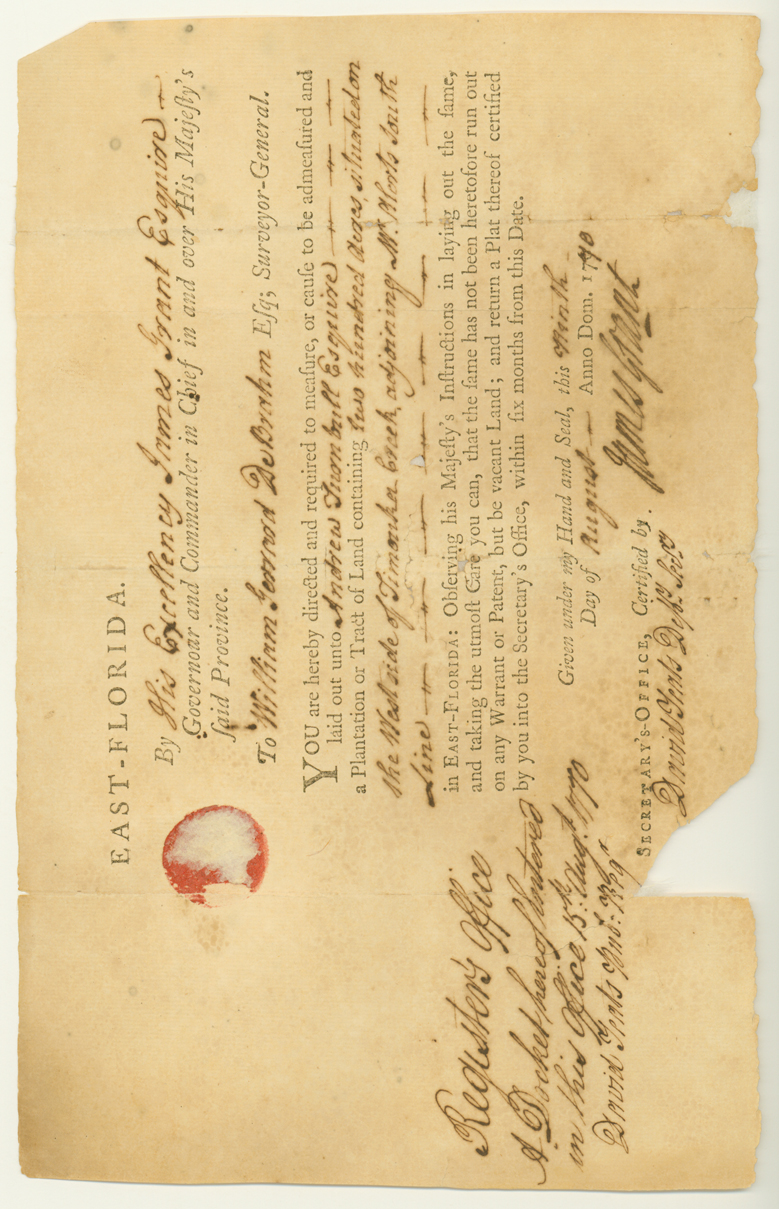 EAST-FLORIDA.
By His Excellency James Grant Esquire
Governour and Commander in Chief in and over His Majeſty's
ſaid Province.
To William Gerrard De Brahm Eſq; Surveyor-General.
YOU are hereby directed and required to meaſure, or cauſe to be admeaſured and
laid out unto Andrew Turnbull Esquire
a Plantation or Tract of Land containing two hundred Acres situated on
the West side of Timonka Creek adjoining Mr. South
Line
in EAST-FLORIDA: Obſerving his Majeſty's Inſtructions in laying out the ſame,
and taking the utmoſt Care you can, that the ſame has not been heretofore run out
on any Warrant or Patent, but be vacant Land; and return a Plat thereof certified
by you into the Secretary's Office, within ſix months from this Date.
Given under my Hand and Seal, this Ninth
Day of August Anno Dom. 1770.
James Grant
SECRETARY'S-OFFICE, Certified by
David Yeats Depy. Secry
Register's Office
A Docket hereof Entered
in this Office 15th. Augt. 1770
David Yeats